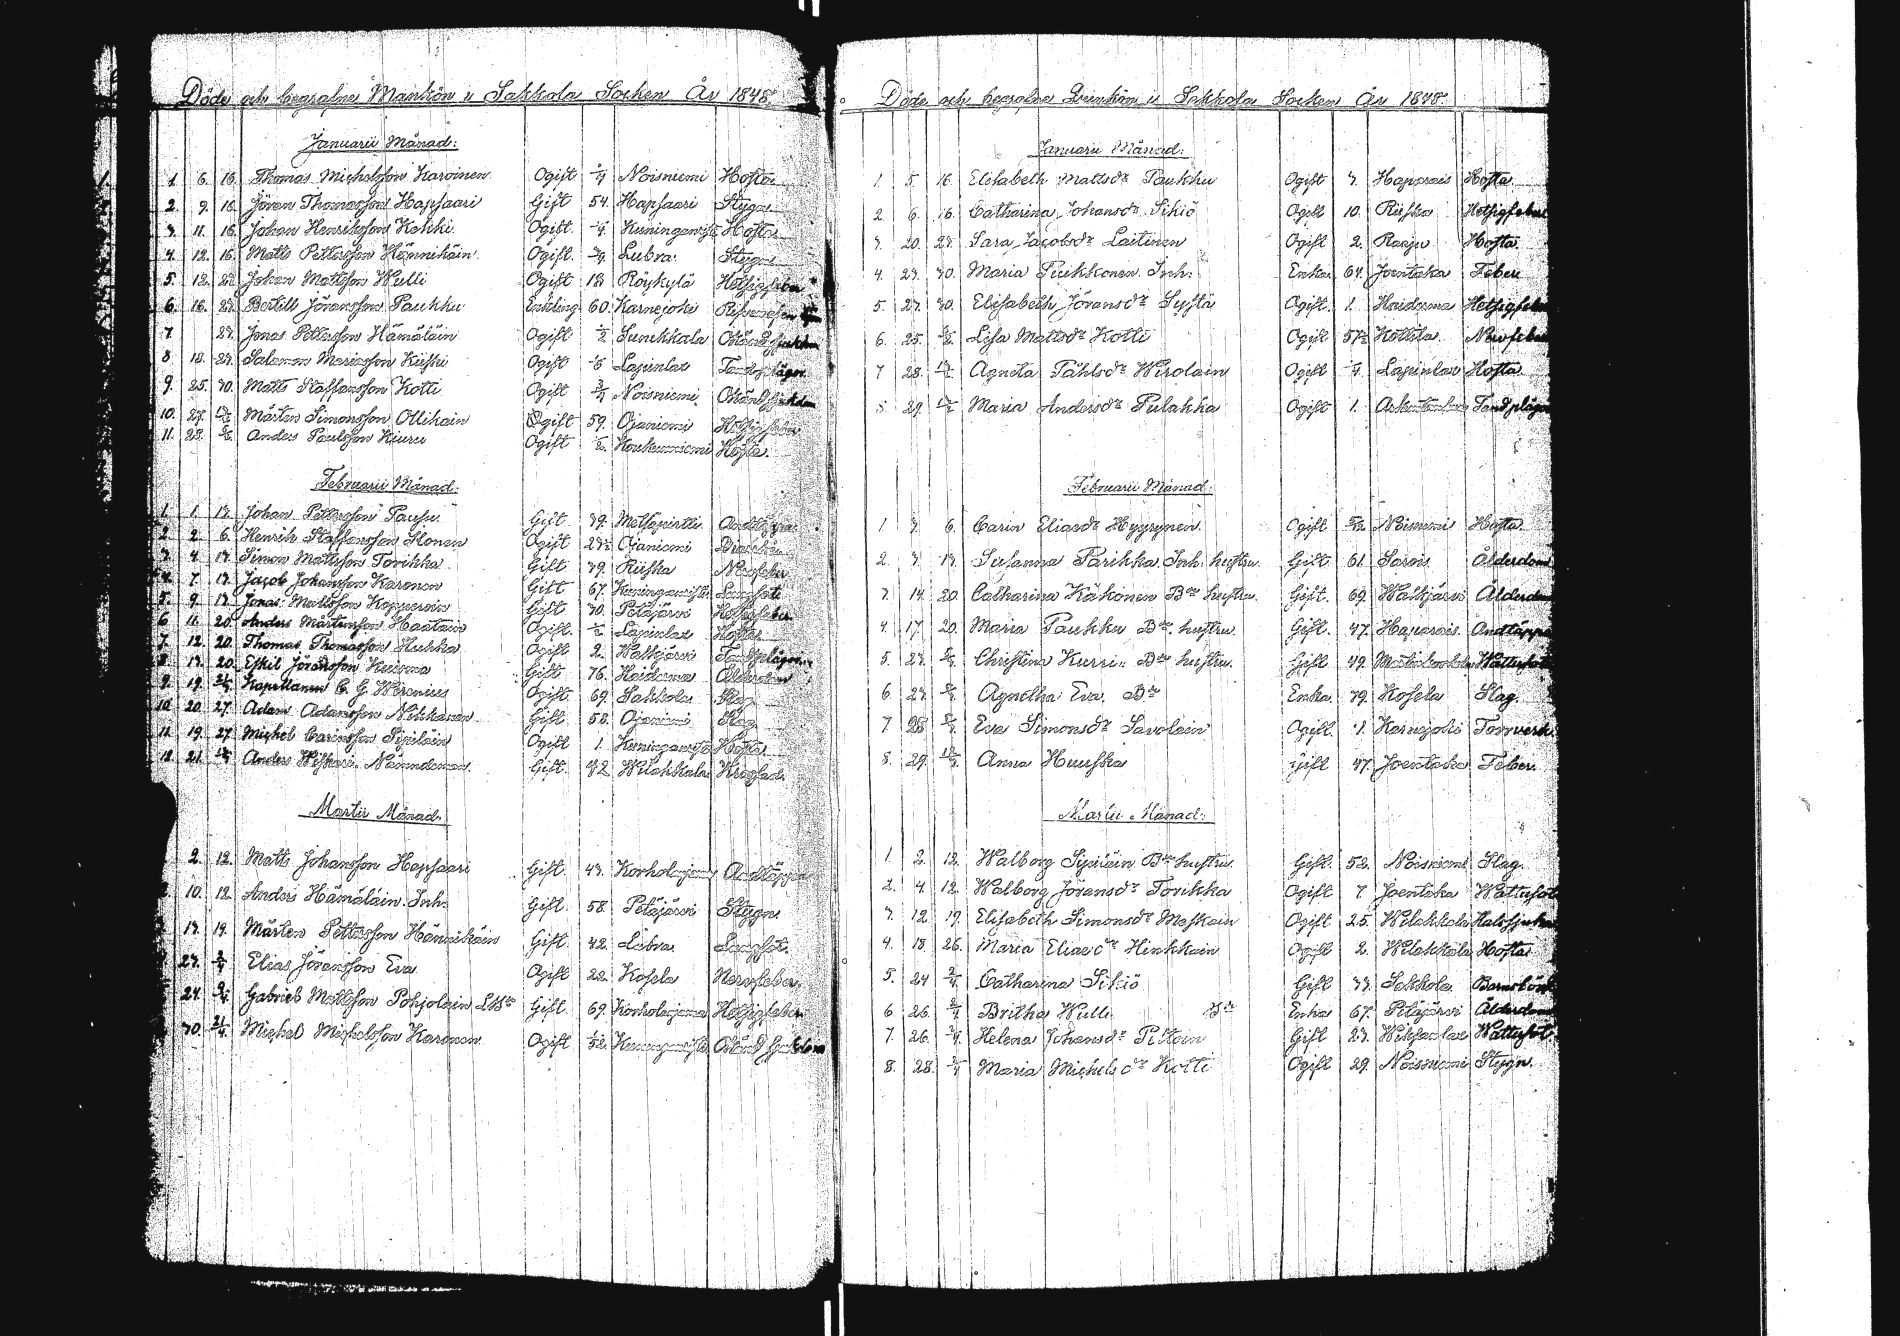 Döde och begrafne Mankön i Sakkola Socken År 1848.
Januarii Månad:
1. 6. 16. Thomas Michelsson Karoinen. Ogift Noisniemi Hosta
2. 9. 16. Jöran Thomasson Hapsaari Gift 54. Hapsaari Stygn
3. 11. 16. Johan Henriksson Kekki Ogift Hosta
4. 12. 16. Matts Pettersson Hännikäin. Ogift Lubra. Stygn
5. 12. 23. Johan Mattsson Wulli Ogift 12 Röykylä Hetsigfeber
6. 16. 23. Bertill Jöransson Paukku Enkling 60. Karnajoki
7 23. Jonas Pettersson Hämäläin Ogift Sunikkala Okänd sjukdom
8 23. Salomon Mariasson Kiiski Ogift Lapinlax Tandplågor
9. 25. 30. Matts Staffansson Kotti Ogift Noisniemi. Okänd sjukdom
10. 27. Mårten Simonsson Ollikain Ogift 59. Ojaniemi Hetsigfeber
11. Anders Paulsson Kiuru Ogift Koukunniemi Hosta.
Februarii Månad:
1. 1. 13. Johan Pettersson Pausu Gift 39. Metsäpirtti
2. 2. 6. Henrik Staffansson Ilonen Ogift Ojaniemi
3. 4. 13. Simon Mattsson Torikka Gift 39. Riiska Nervfeber
4. 7. 13. Jacob Johansson Karonen Gift 67.
5. 9. 13. Jonas Mattsson Kopperoin Gift 30. Petäjärvi Hetsigfeber
6 11. 20. Anders Mårtensson Haatain Ogift. Lapinlax Hosta
7. 12 20. Thomas Thomasson Hukka Ogift 2. Walkjärvi Tandplågor
8. 13. 20. Eskil Jöransson Kuisma Gift 76. Haiderma Ålderdom
9. 19. Kapellanen C. G. Wirenius Ogift 69. Sakkola Slag
10 20. 27. Adam Adamsson Nikkanen Gift 58. Ojaniemi Slag
11. 19. 27 Michel Carinsson Sipiläin Ogift 1. Hosta
12. 21. Anders Wiskari. Nämndeman. Gift. 42 Wilakkala
Martii Månad.
2. 12. Matts Johansson Hapsaari Gift. 43. Korholanjama Andtäppa
10. 12 Anders Hämäläin. Inh. Gift. 58. Petäjärvi Stygn
13. 19. Mårten Pettersson Hännikäin Gift. 42. Lubra
23. Elias Jöransson Eva Ogift 22. Kosela Nervfeber.
24. Gabriel Mattsson Pohjolain Gift. 69. Korholanjama Hetsigfeber
30. Michel Michelsson Karonen Ogift Okänd sjukdom
Döde och begrafne Qvinkön i Sakkola Socken År 1848.
Januarii Månad:
1. 5. 16. Elisabeth Mattsdr Paukku Ogift 3. Haparais Hosta
2 6. 16. Catharina Johansdr Sikiö Ogift 10. Riiska Hetsigfeber
3. 20. 23. Sara Jacobsdr Laitinen Ogift 2. Raaju Hosta
4. 23. 30. Maria Pukkonen Inh: Enka 64. Joentaka Feber
5. 23. 30. Elisabeth Jöransdr Systä Ogift. 1. Haiderma Hetsigfeber
6. 25. Lisa Mattsdr Kotti Ogift Kottila. Nervfeber
7 28. Agneta Påhlsdr Wirolain Ogift Lapinlax Hosta.
8. 29. Maria Andersdr Pulakka Ogift 1. Tandplågor
Februarii Månad:
1 3. 6. Carin Eliasdr Hyyrynen Ogift Noisniemi Hosta
2. 3. 13. Susanna Parikka. Inh: hustru. Gift 61. Sarois Ålderdom
3. 14 20. Catharina Käkonen Bde hustru. Gift. 69. Walkjärvi Ålderdom
4 17. 20. Maria Paukku Bde hustru. Gift. 47. Haparais. Andtäppa
5. 23. Christina Kurri Bde hustru. Gift 49. Wattusot
6. 23. Agnetha Eva. Bde Enka 39. Kosela Slag.
7 28 Eva Simonsdr Savolain Ogift. 1. Karnajoki Torrverk
8. 29. Anna Huuska Gift 47. Joentaka Feber.
Martii Månad:
1. 2. 12. Walborg Sipiläin Bde hustru. Gift. 52. Noisniemi Slag.
2. 4. 12. Walborg Jöransdr Torikka Ogift 7 Joentaka Wattusot
3. 12. 19. Elisabeth Simonsdr Meskain Ogift 25. Wilakkala Halssjuka
4. 18 26. Maria Eliaedr Hinkkain Ogift 2. Wilakkala Hosta
5. 24 Catharina Sikiö Gift 33. Sakkola Barnsbörd
6 26. Britha Wulli Bde Enka 67. Petäjärvi Ålderdom
7. 26. Helena Johansdr Pittain Gift 23. Wattusot.
8. 28. Maria Michelsdr Kotti Ogift 29. Noisniemi Stygn.